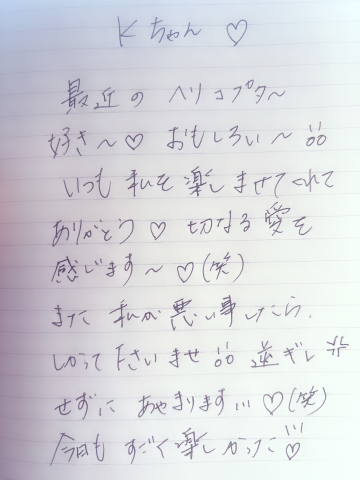 Kちゃん ♡
最近の ヘリコプター
好き〜♡ おもしろい〜
いつも 私を 楽しませてくれて
ありがとう♡ 切なる愛を
感じます〜♡(笑)
また 私が 悪い事したら、
しかって下さいませ 逆ギレ
せずに あやまります…♡(笑)
今日も すごく楽しかった♡